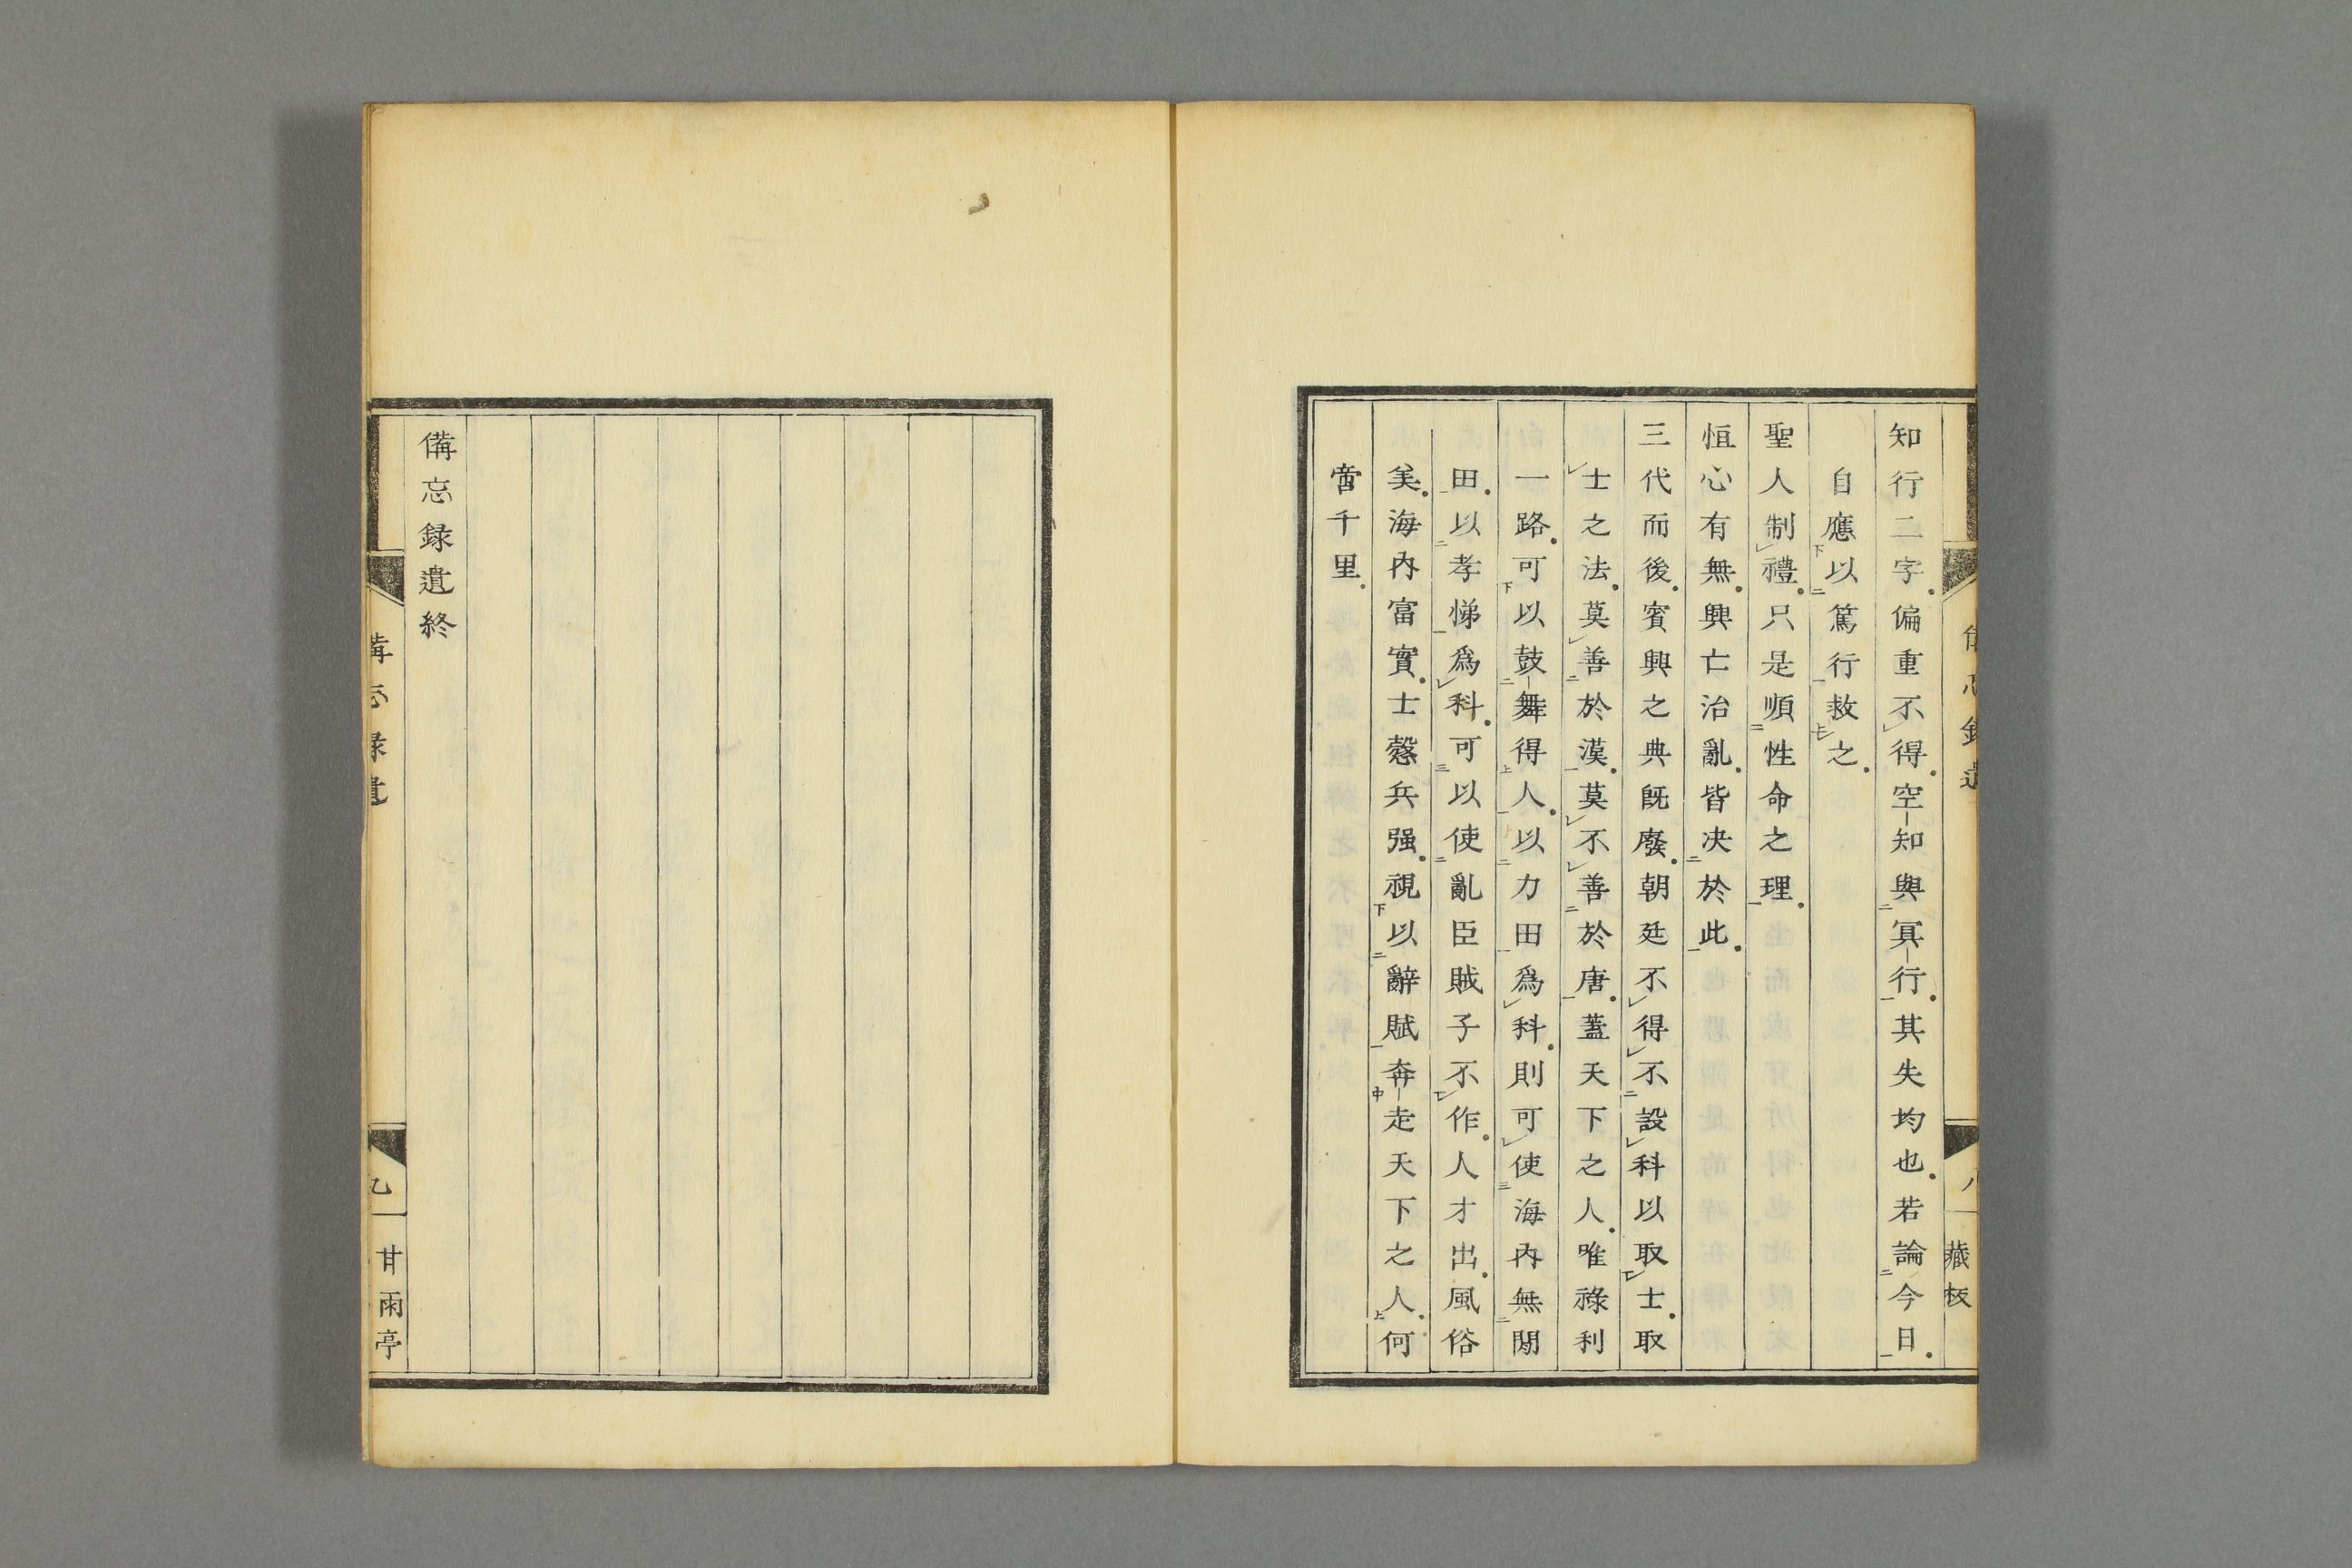 知行二字偏重不得空知與冥行其失均也若論今日
自應以篤行救之
聖人制禮只是順性命之理
恒心有無興亡治亂皆决於此
三代而後賓興之典既廢朝廷不得不設科以取士取
士之法莫善於漢莫不善於唐蓋天下之人唯祿利
一路可以鼓舞得人以力田為科則可使海內無閒
田以孝悌為科可以使亂臣賊子不作人才出風俗
美海內富實士慤兵强視以辭賦奔走天下之人何
啻千里
藏板
備忘録遺終
備忘録遺
九
甘雨亭